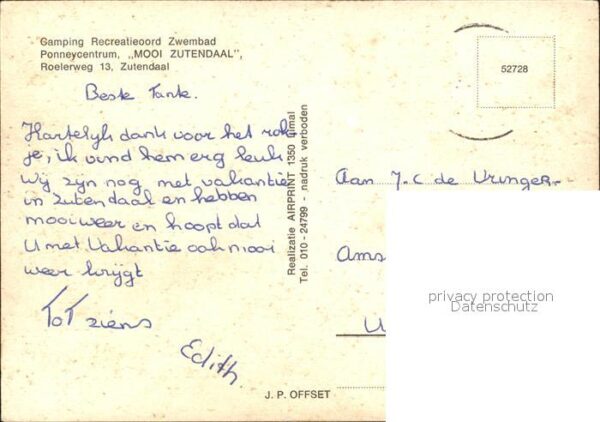 Gamping Recreatieoord Zwembad
Ponneycentrum, „MOOI ZUTENDAAL",
Roelerweg 13, Zutendaal
52728
Beste Tante.
Hartelijk dank voor het rok
je, ik vind hem erg leuk
Wij zijn nog met vakantie
in Zutendaal en hebben
mooi weer en hoopt dat
U met Vakantie ook mooi
weer krijgt
ToT ziens
Edith
Realizatie AIRPRINT 1350 Olmal
Tel. 010 - 24799 - nadruk verboden
Aan J.C de Vringer
Ams
U
privacy protection
Datenschutz
J. P. OFFSET